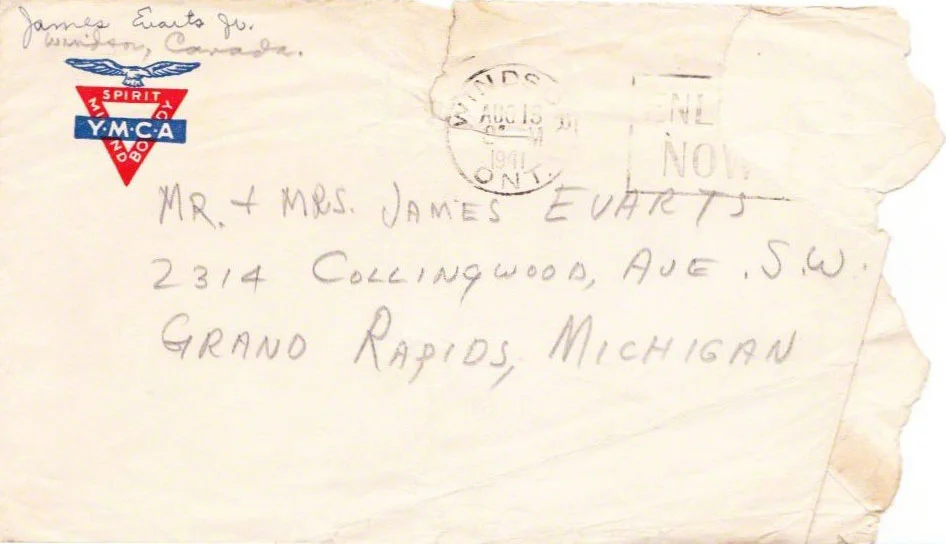 James Evarts Jr.
Windsor, Canada.
SPIRIT
MIND
BODY
Y·M·C·A
WINDSO
AUG 13
1941
ONT.
ENL
NOW
MR. + MRS. JAMES EVARTS
2314 COLLINGWOOD, AVE. S.W.
GRAND RAPIDS, MICHIGAN